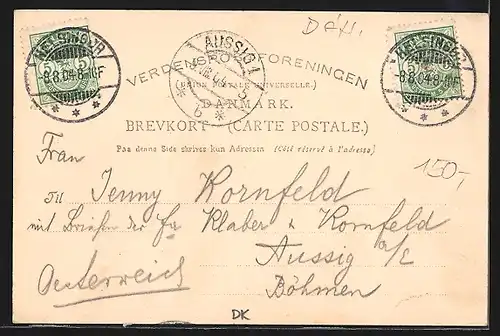 DÄN.
HELSINGØR
8.8.04.8-9F
AUSSIG 1
HELSINGØR
8.8.04.8-9F
VERDENSPOSTFORENINGEN
(UNION POSTALE UNIVERSELLE.)
DANMARK.
BREVKORT – (CARTE POSTALE.)
Paa denne Side skrives kun Adressen (Côté réservé à l'adresse.)
150,-
Frau
Til Jenny Kornfeld
mit Briefen der Fa Klaber & Kornfeld
Aussig a/E
Oesterreich
Böhmen
DK